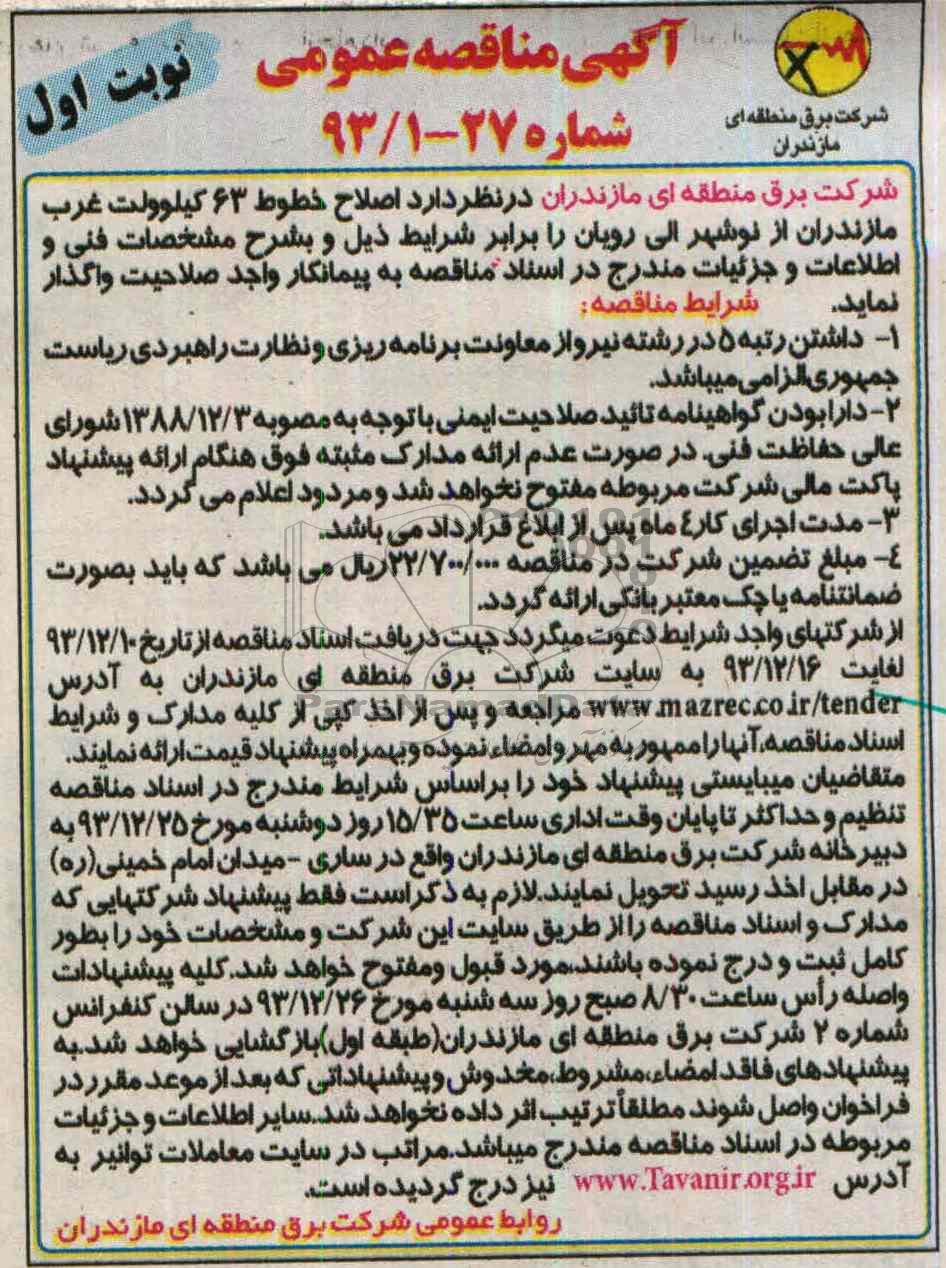 آگهی مناقصه عمومی
شماره ۲۷-۹۳/۱
نوبت اول
شرکت برق منطقه ای
مازندران
شرکت برق منطقه ای مازندران درنظردارد اصلاح خطوط ۶۳ کیلوولت غرب
مازندران از نوشهر الی رویان را برابر شرایط ذیل و بشرح مشخصات فنی و
اطلاعات و جزئیات مندرج در اسناد مناقصه به پیمانکار واجد صلاحیت واگذار
نماید. شرایط مناقصه:
۱- داشتن رتبه ۵ در رشته نیرو از معاونت برنامه ریزی و نظارت راهبردی ریاست
جمهوری الزامی میباشد.
۲- دارا بودن گواهینامه تائید صلاحیت ایمنی با توجه به مصوبه ۱۳۸۸/۱۲/۳ شورای
عالی حفاظت فنی. در صورت عدم ارائه مدارک مثبته فوق هنگام ارائه پیشنهاد
پاکت مالی شرکت مربوطه مفتوح نخواهد شد و مردود اعلام می گردد.
۳- مدت اجرای کار ٤ ماه پس از ابلاغ قرارداد می باشد.
٤- مبلغ تضمین شرکت در مناقصه ۲۲/۷۰۰/۰۰۰ ریال می باشد که باید بصورت
ضمانتنامه یا چک معتبر بانکی ارائه گردد.
از شرکتهای واجد شرایط دعوت میگردد جهت دریافت اسناد مناقصه از تاریخ ۹۳/۱۲/۱۰
لغایت ۹۳/۱۲/۱۶ به سایت شرکت برق منطقه ای مازندران به آدرس
www.mazrec.co.ir/tender مراجعه و پس از اخذ کپی از کلیه مدارک و شرایط
اسناد مناقصه، آنها را ممهور به مهر و امضاء نموده و بهمراه پیشنهاد قیمت ارائه نمایند.
متقاضیان میبایستی پیشنهاد خود را براساس شرایط مندرج در اسناد مناقصه
تنظیم و حداکثر تا پایان وقت اداری ساعت ۱۵/۳۵ روز دوشنبه مورخ ۹۳/۱۲/۲۵ به
دبیرخانه شرکت برق منطقه ای مازندران واقع در ساری -میدان امام خمینی(ره)
در مقابل اخذ رسید تحویل نمایند.لازم به ذکر است فقط پیشنهاد شرکتهایی که
مدارک و اسناد مناقصه را از طریق سایت این شرکت و مشخصات خود را بطور
کامل ثبت و درج نموده باشند،مورد قبول ومفتوح خواهد شد.کلیه پیشنهادات
واصله رأس ساعت ۸/۳۰ صبح روز سه شنبه مورخ ۹۳/۱۲/۲۶ در سالن کنفرانس
شماره ۲ شرکت برق منطقه ای مازندران(طبقه اول)بازگشایی خواهد شد.به
پیشنهادهای فاقد امضاء،مشروط،مخدوش و پیشنهاداتی که بعد از موعد مقرر در
فراخوان واصل شوند مطلقاً ترتیب اثر داده نخواهد شد.سایر اطلاعات و جزئیات
مربوطه در اسناد مناقصه مندرج میباشد.مراتب در سایت معاملات توانیر به
آدرس www.Tavanir.org.ir نیز درج گردیده است.
روابط عمومی شرکت برق منطقه ای مازندران